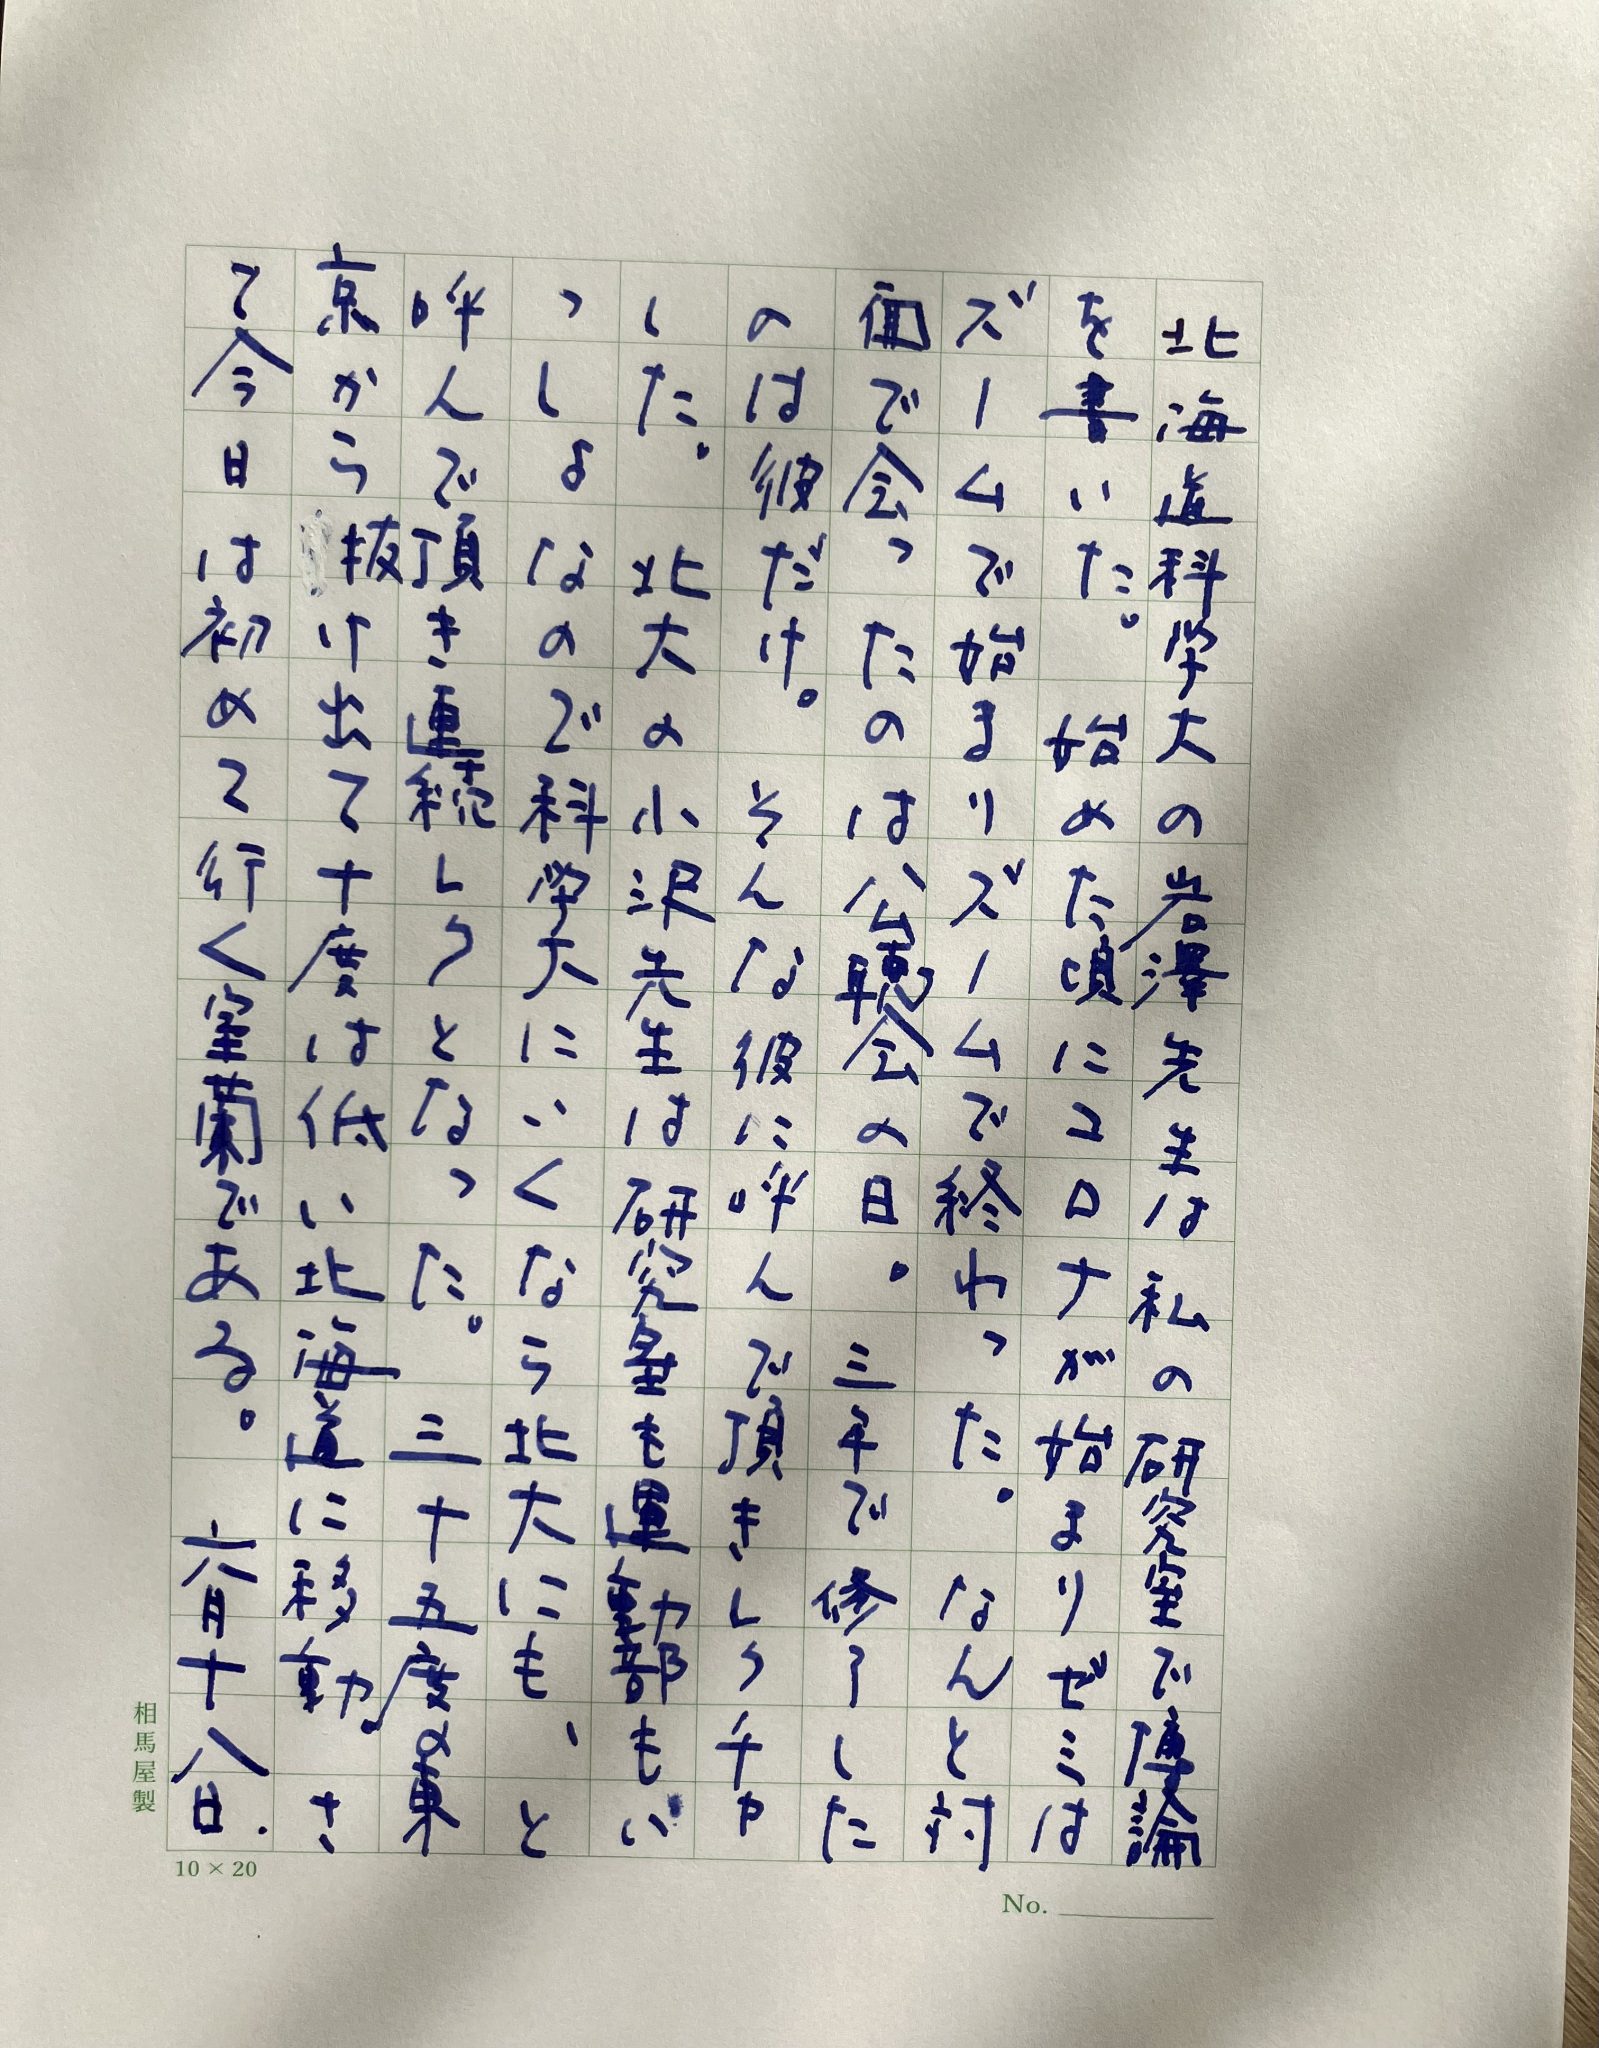 北海道科学大の岩澤先生は私の研究室で博論
を書いた。始めた頃にコロナが始まりゼミは
ズームで始まりズームで終わった。なんと対
面で会ったのは公聴会の日。三年で修了した
のは彼だけ。そんな彼に呼んで頂きレクチャ
した。北大の小沢先生は研究室も運動部もい
っしょなので科学大にいくなら北大にも、と
呼んで頂き連続レクとなった。三十五度の東
京から抜け出て十度は低い北海道に移動。さ
て今日は初めて行く室蘭である。六月十八日.
相馬屋製
10×20
No.